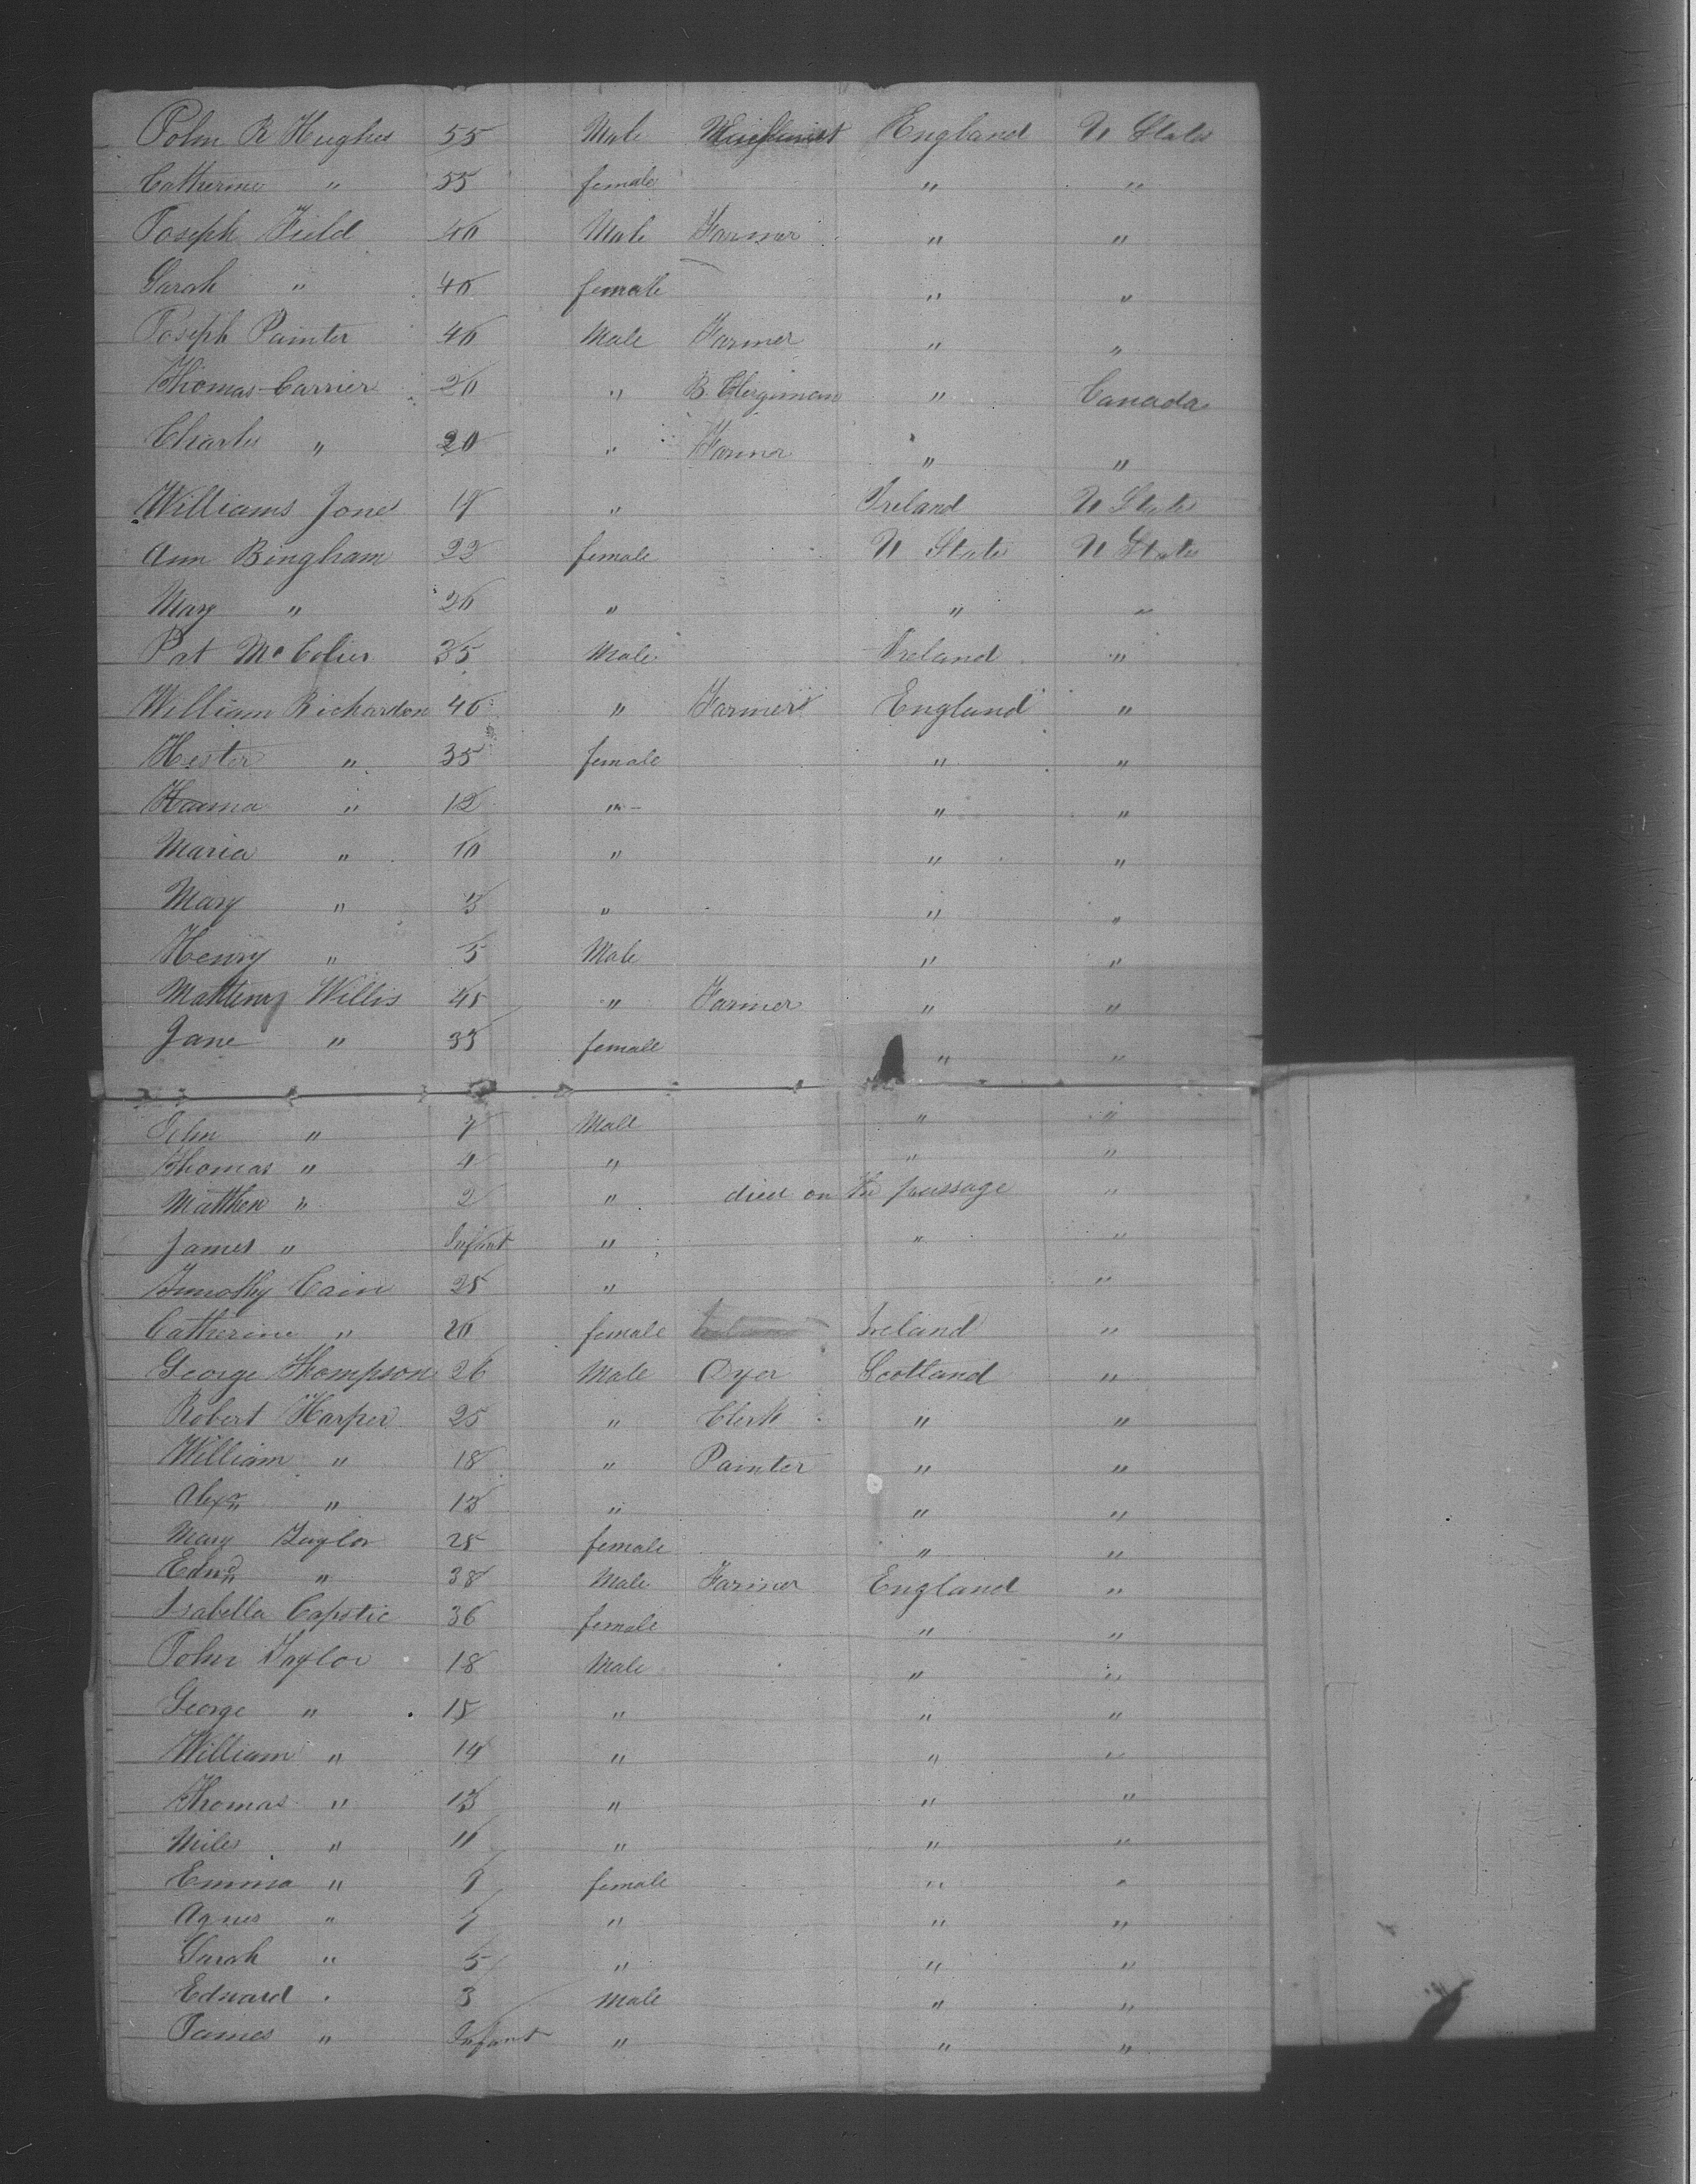 John R Hughes 55 Male England U States
Catherine " 55 female " "
Joseph Field 40 Male Farmer " "
Sarah " 40 female " "
Joseph Painter 40 Male Farmer " "
Thomas Carrier 20 " B. Clergiman " Canada
Charles " 20 " Farmer " "
Williams Jones " Ireland U States
Ann Bingham 22 female U States U States
Mary " 20 " " "
Pat 35 Male Ireland "
William Richardson 40 " Farmer England "
Hester " 35 female " "
Hanna " 12 " " "
Maria " 10 " " "
Mary " 3 " " "
Henry " 5 Male " "
Willis 45 " Farmer " "
Jane " 35 female " "
John " 7 Male " "
Thomas " 4 " " "
Matthew " 2 " died on the passage "
James " Infant " " "
Timothy Cain 25 " "
Catherine " 20 female Ireland "
George Thompson 26 Male Dyer Scotland "
Robert Harper 25 " Clerk " "
William " 18 " Painter " "
Alexr " 13 " " "
Mary Taylor 25 female " "
Edwd " 38 Male Farmer England "
Isabella Capstic 36 female " "
John Taylor 18 Male " "
George " 15 " " "
William " 14 " " "
Thomas " 13 " " "
Miles " 11 " " "
Emma " 9 female " "
Agnes " 7 " " "
Sarah " 5 " " "
Edward " 3 Male " "
James " Infant " " "